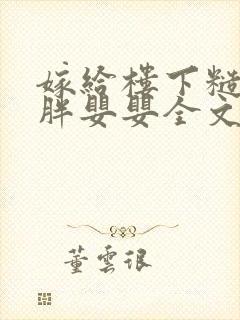 嫁给楼下糙
胖嬰嬰全文
董雲很